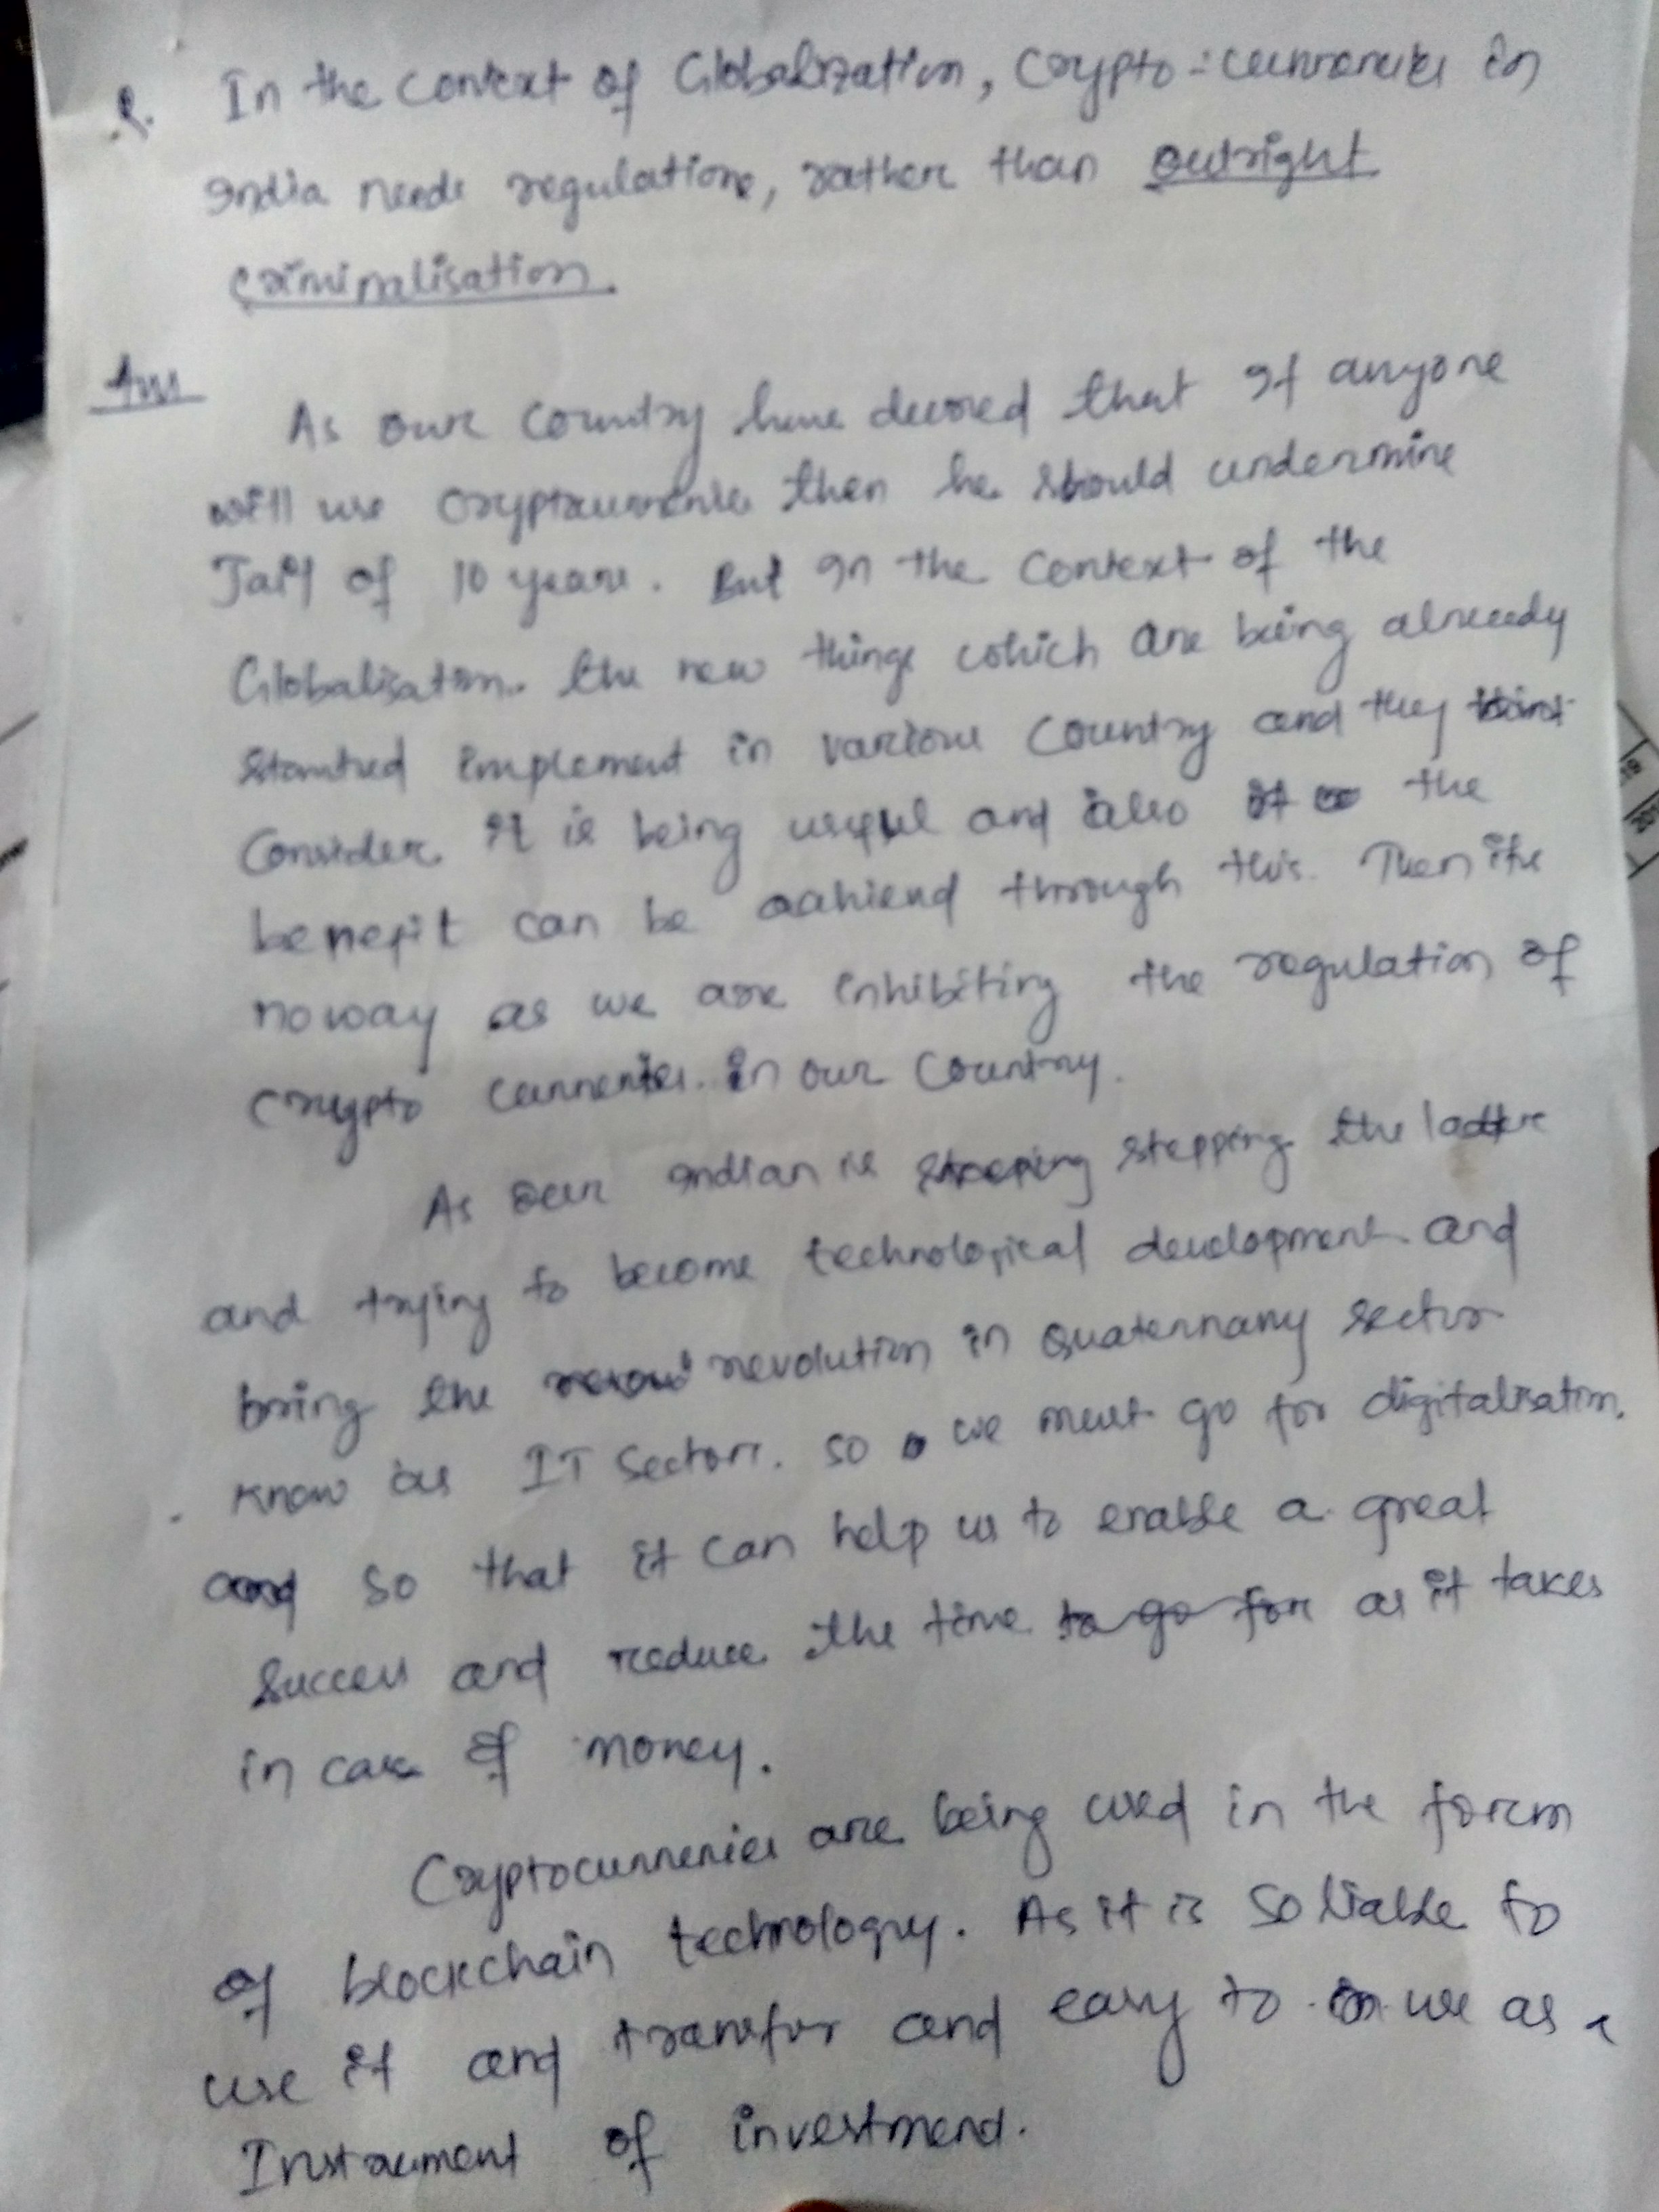 Q. In the context of Globalization, Crypto-currencies in
India needs regulations, rather than outright
criminalisation.
Ans
As our country have decored that If anyone
will use cryptocurrencies then he should undermine
Jail of 10 years. But In the context of the
Globalisation the new things which are being already
started implement in various country and they
consider it is being useful and also the
benefit can be achieved through this. Then its
noway as we are inhibiting the regulation of
crypto currencies in our country.
As our Indian is stepping the ladder
and trying to become technological development and
bring the revolution in Quaternary sector
know as IT Sectors. so we must go for digitalisation.
and so that it can help us to enable a great
success and reduce the time to go for as it takes
in case of money.
Cryptocurrencies are being used in the form
of blockchain technology. As it is so liable to
use it and transfer and easy to use as a
Instrument of investmend.